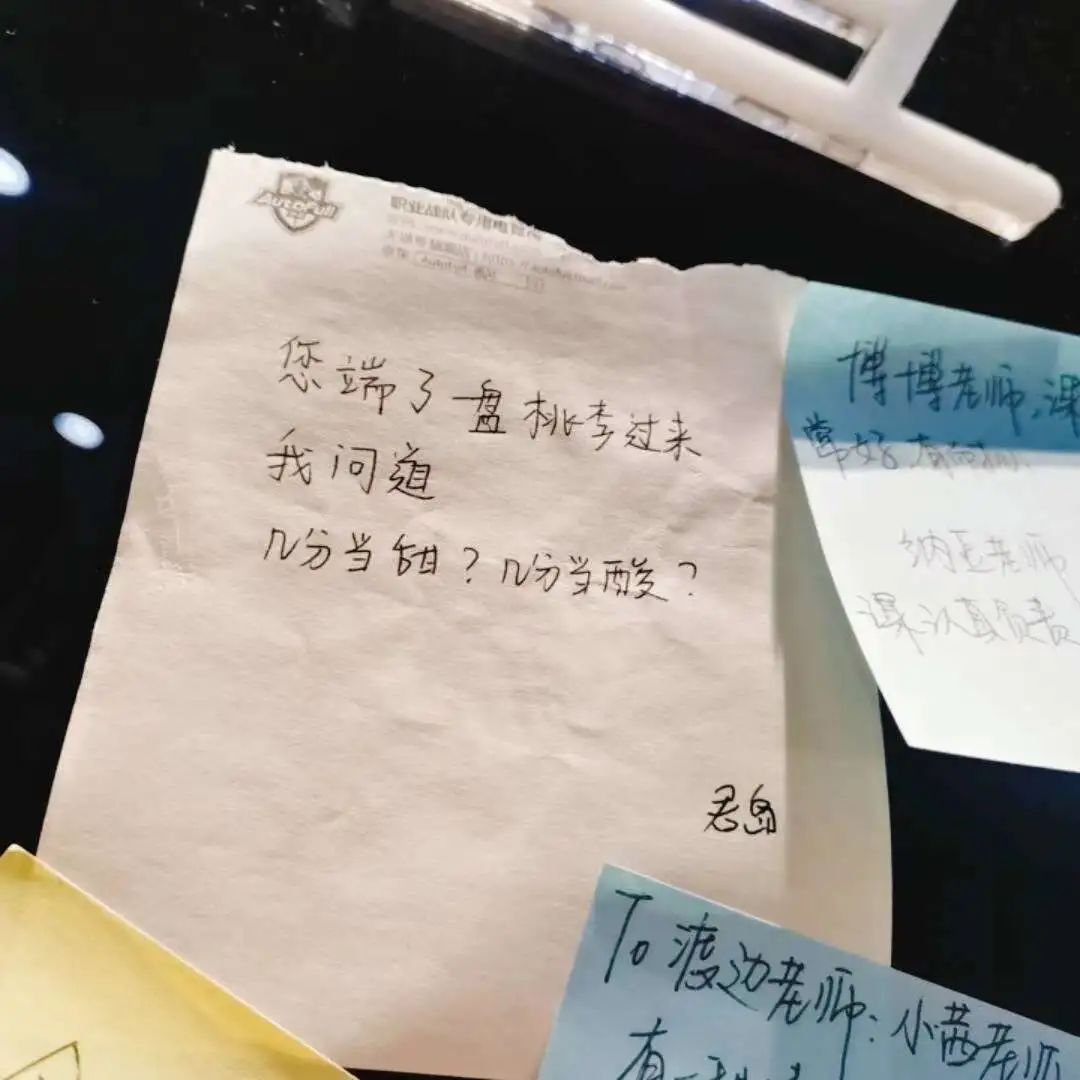 AutoFull
职业战队专用电竞椅
您端了一盘桃李过来
我问道
几分当甜？几分当酸？
君岛
博博老师,课
常好.
纳王老师
课认真负责
To 渡边老师：小茜老师